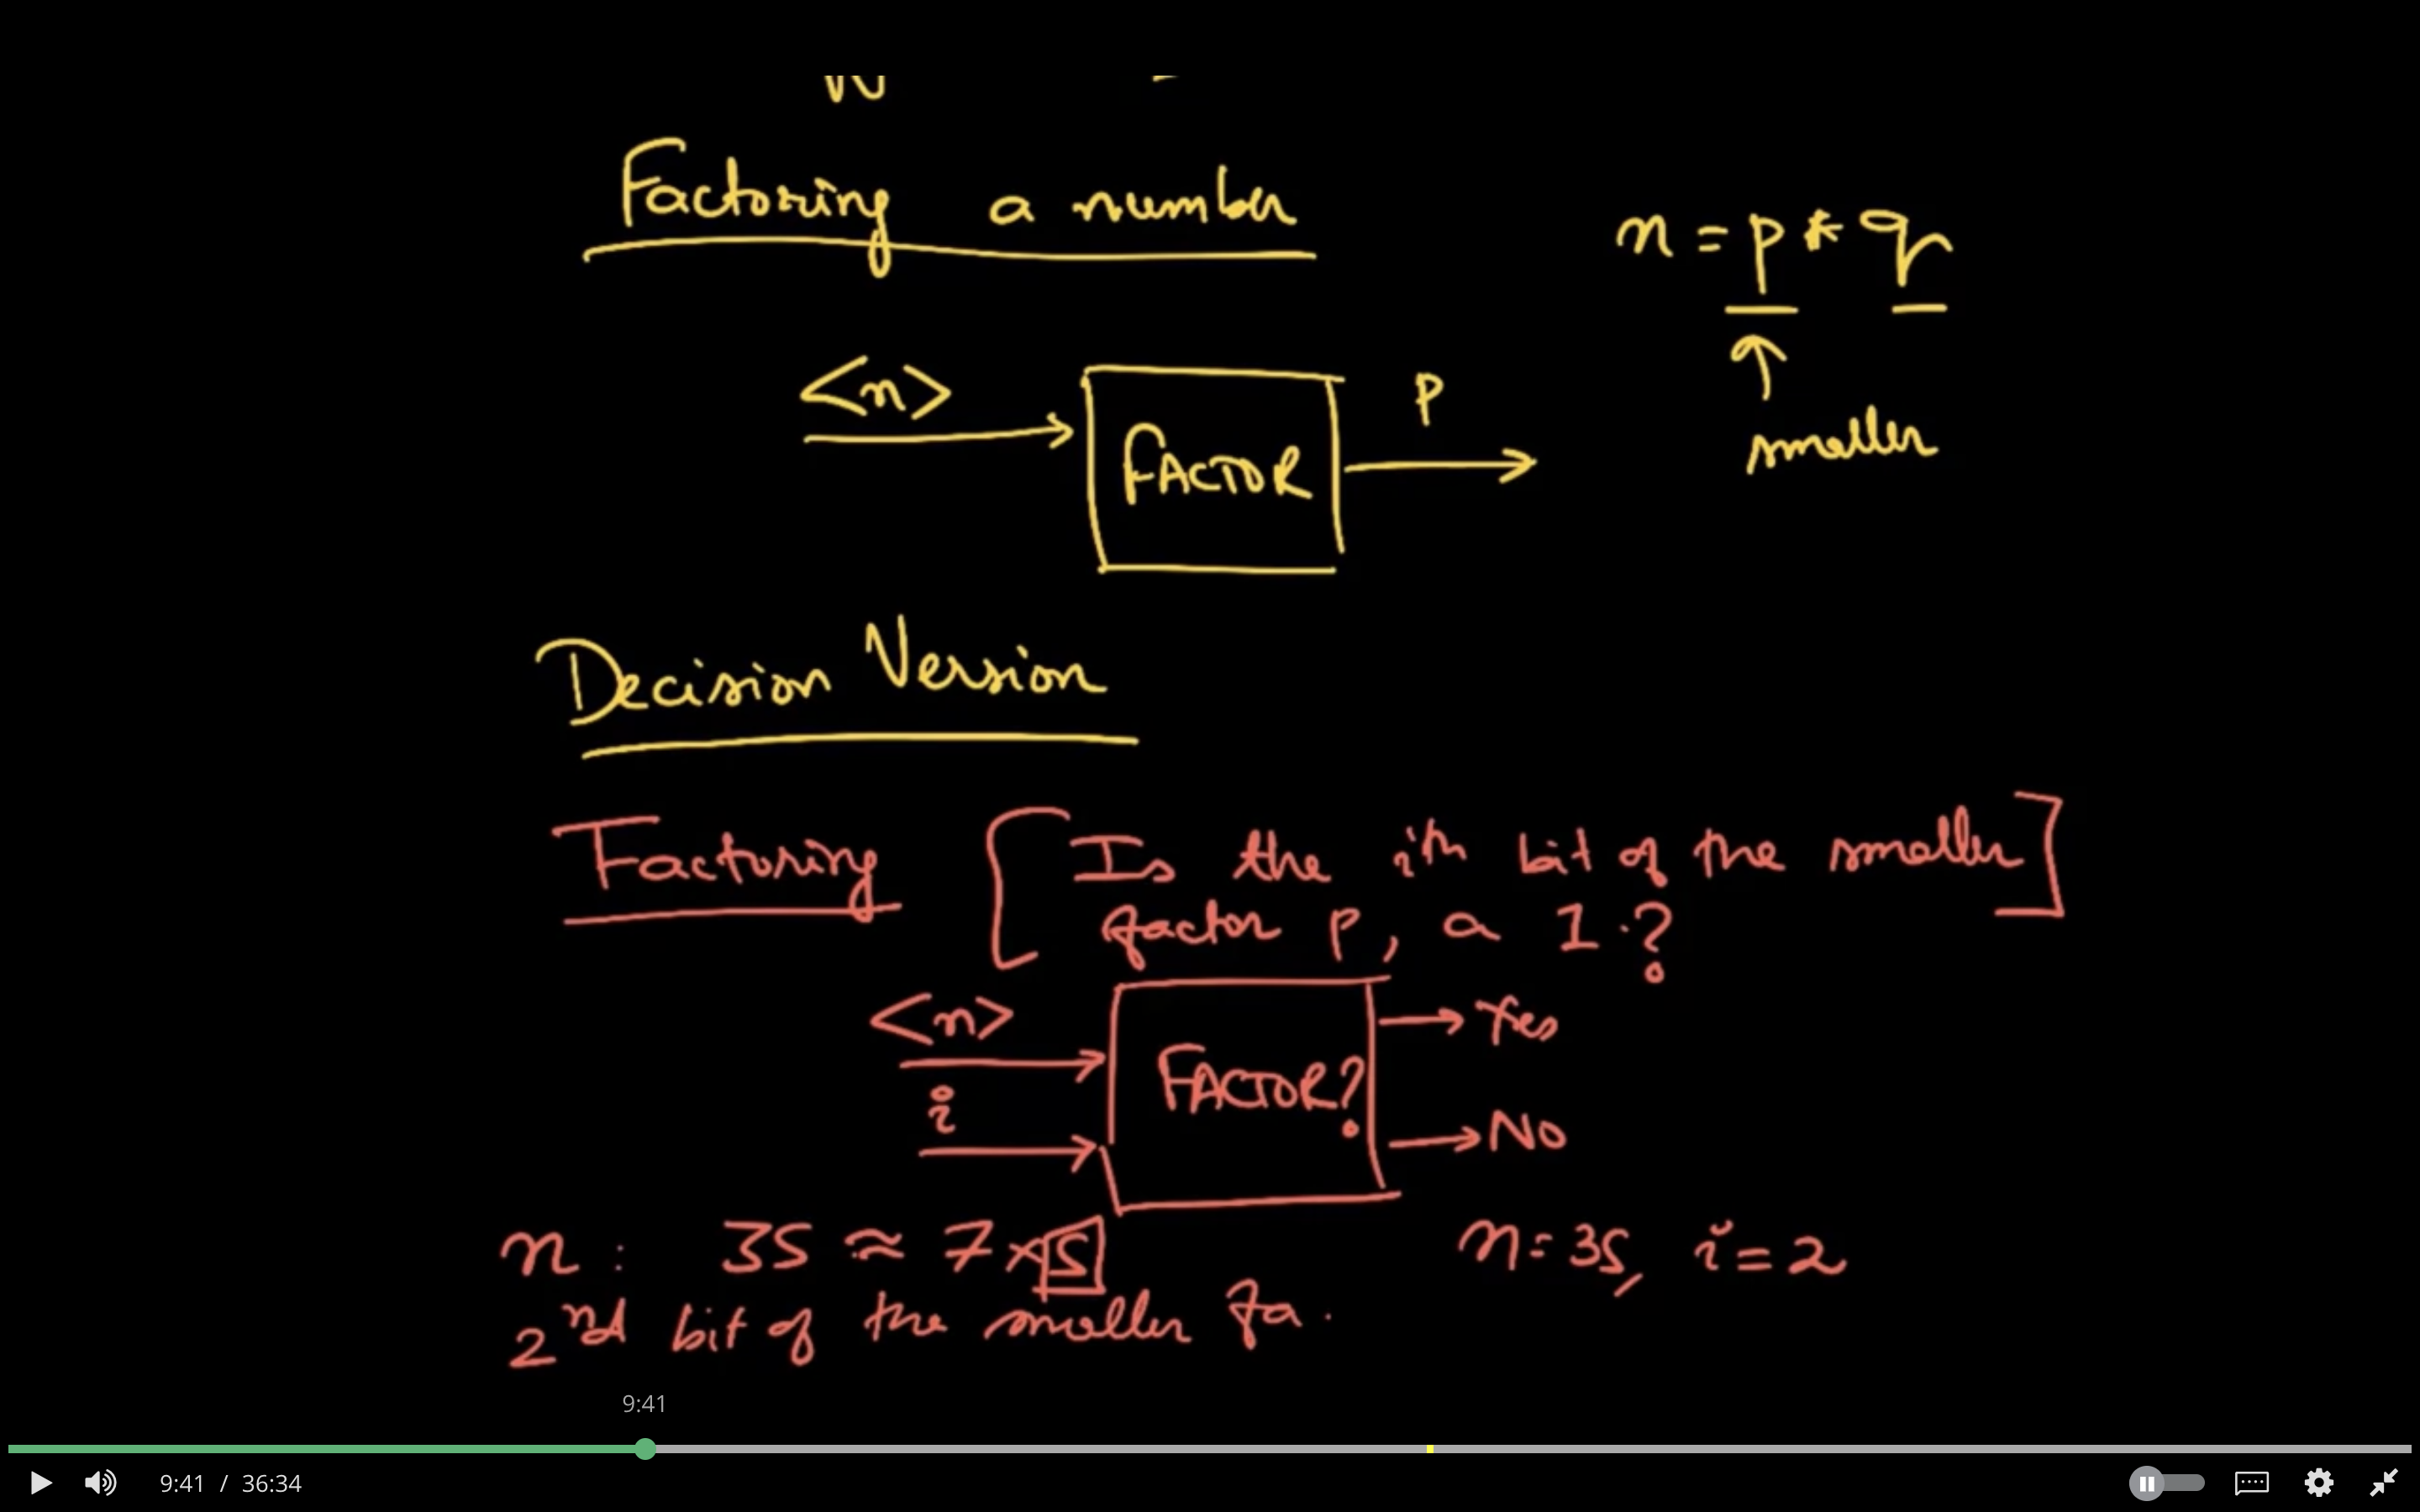 Factoring a number
n = p * q
<n>
p
FACTOR
smaller
Decision Version
Factoring [Is the ith bit of the smaller]
factor p, a 1?
<n>
Yes
FACTOR?
i
No
n: 35 ≈ 7×5
n=35, i=2
2nd bit of the smaller fa.
9:41
9:41 / 36:34